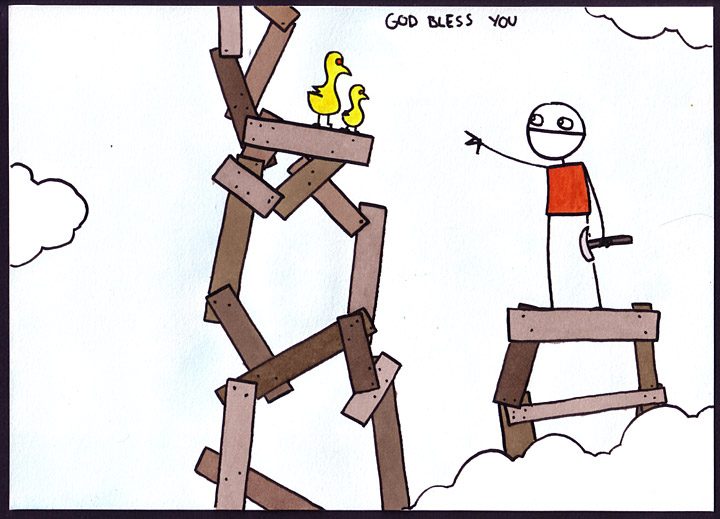 GOD BLESS YOU